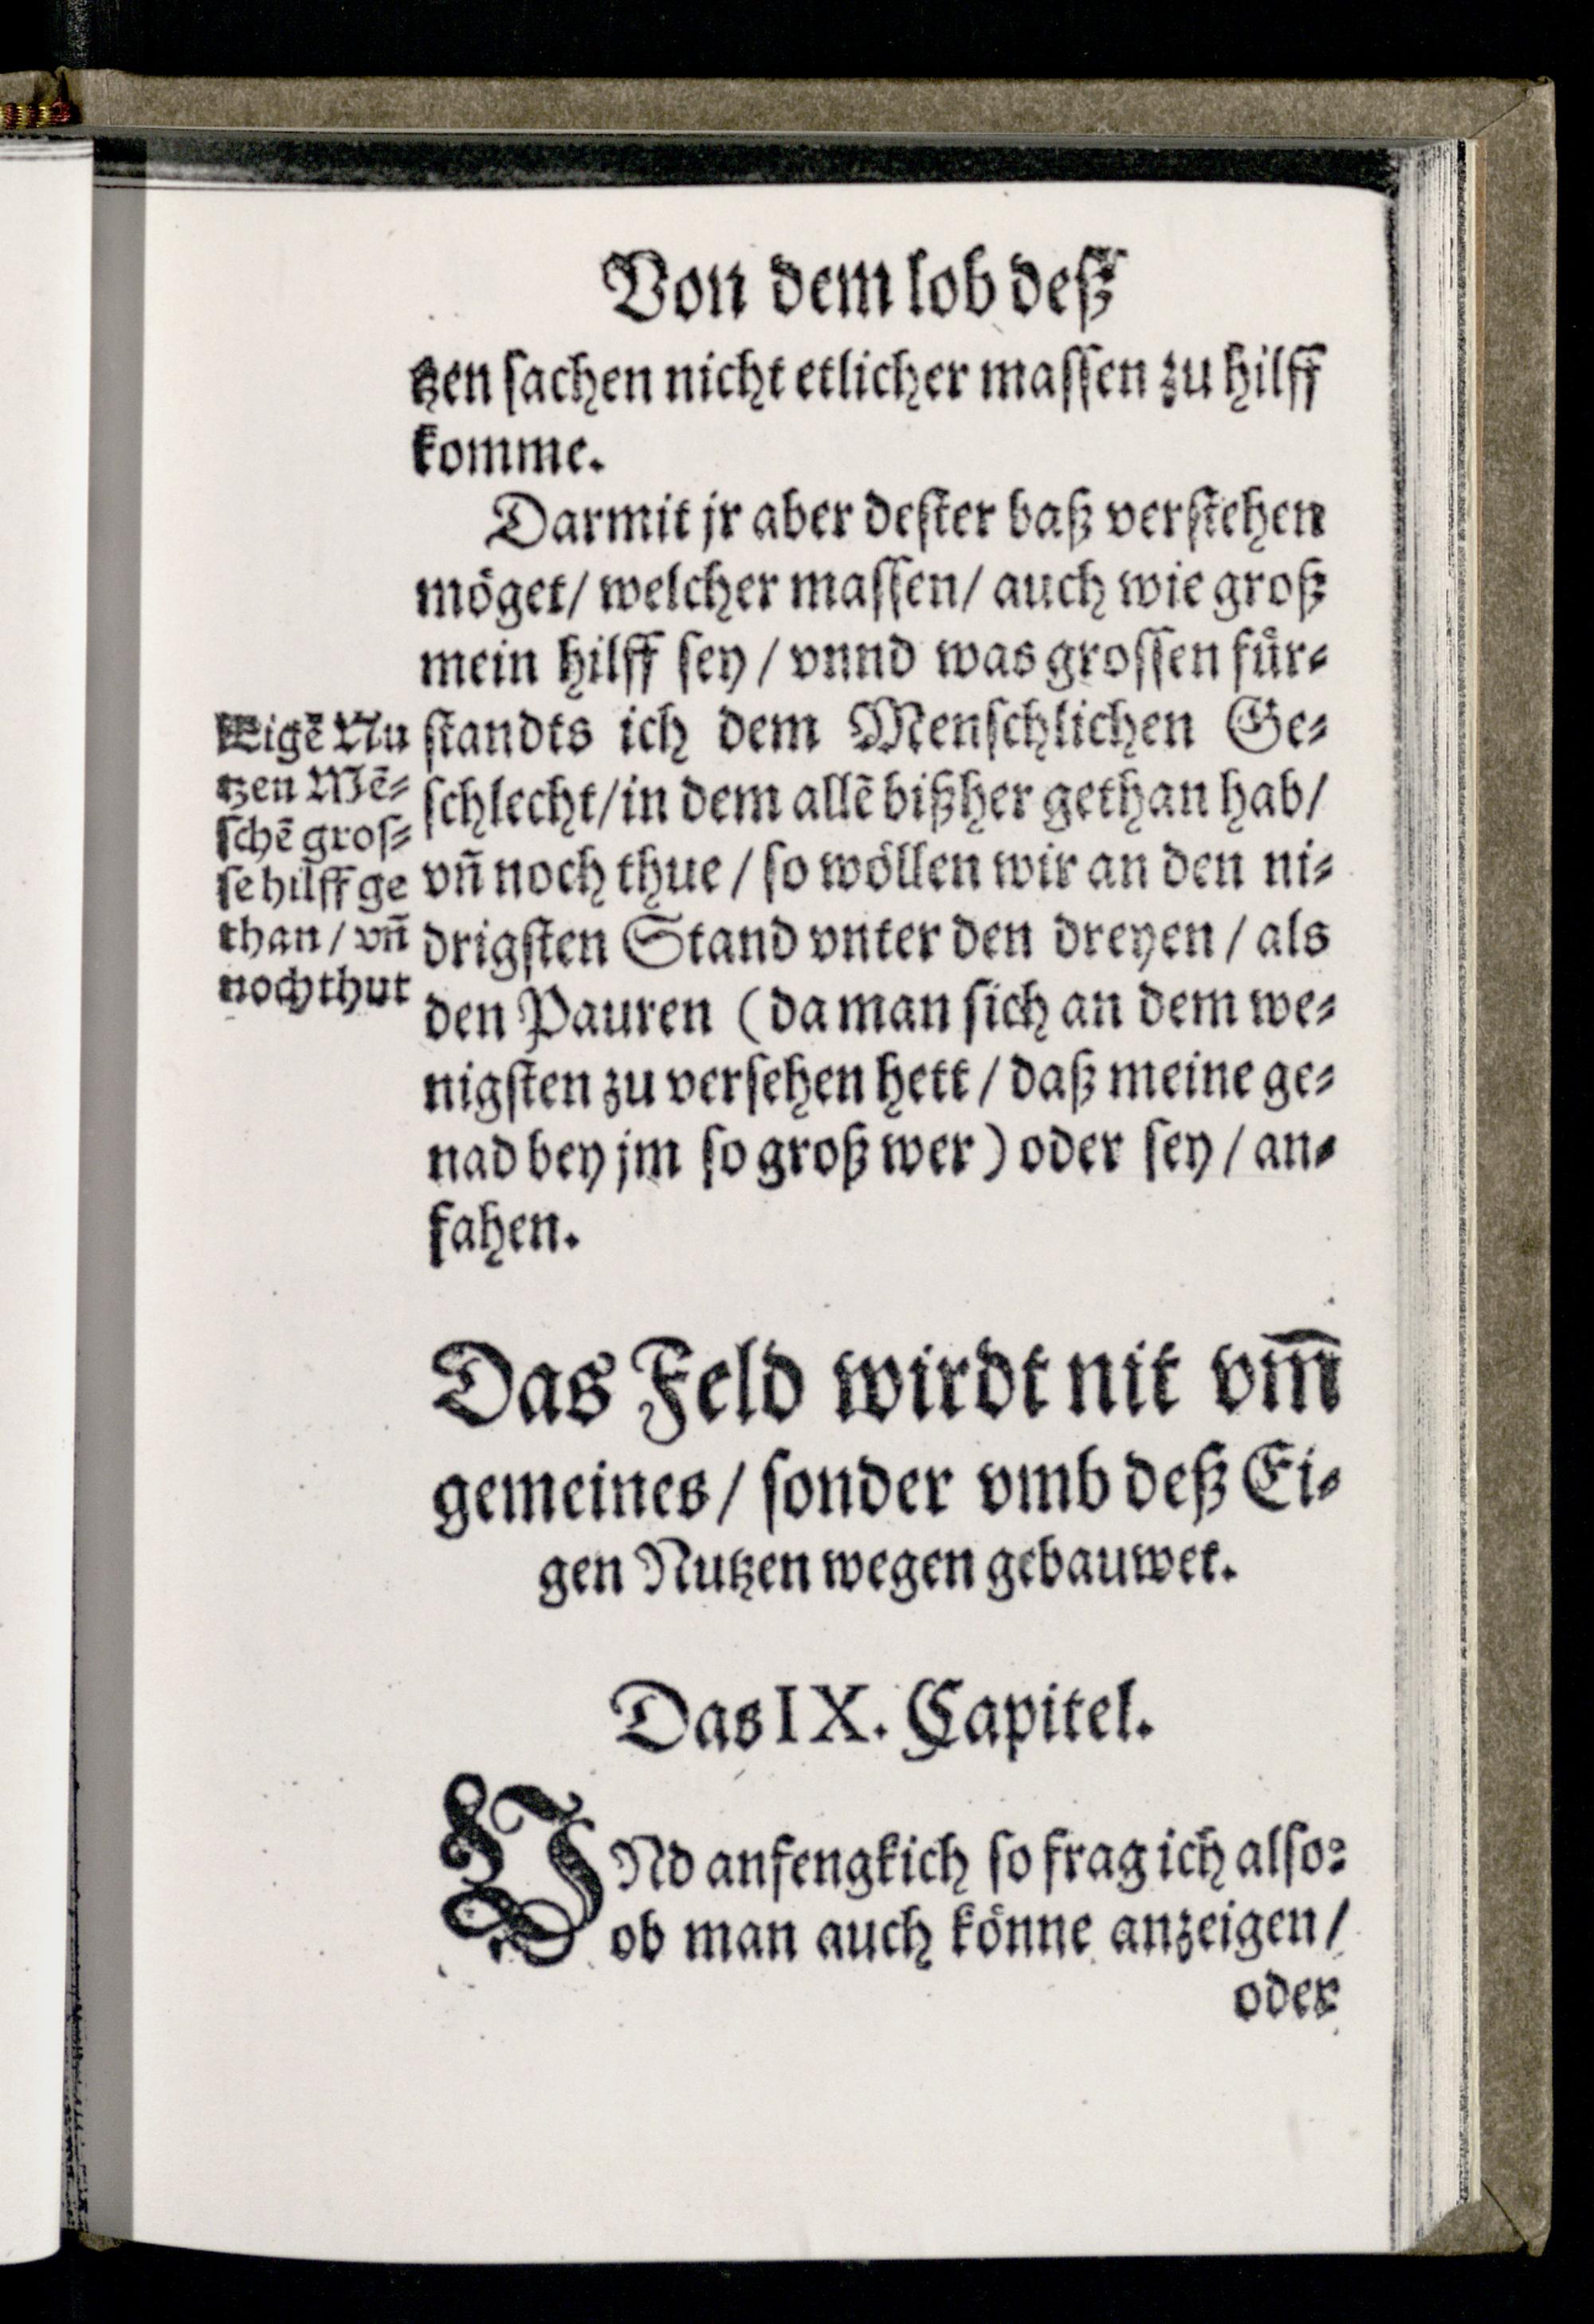 Von dem lob deß
tzen sachen nicht etlicher massen zu hilff
komme.
Darmit jr aber dester baß verstehen
möget/ welcher massen/ auch wie groß
mein hilff sey / vnnd was grossen für⸗
standts ich dem Menschlichen Ge⸗
schlecht/in dem allē bißher gethan hab/
vñ noch thue / so wöllen wir an den ni⸗
drigsten Stand vnter den dreyen / als
den Pauren (da man sich an dem we⸗
nigsten zu versehen hett / daß meine ge⸗
nad bey jm so groß wer) oder sey / an⸗
fahen.
Eigē Nu
tzen Mē⸗
schē gros⸗
se hilff ge
than / vñ
noch thut
Das Feld wirdt nit vm̄
gemeines / sonder vmb deß Ei⸗
gen Nutzen wegen gebauwet.
Das IX. Capitel.
VNd anfengkich so frag ich also:
ob man auch könne anzeigen/
oder